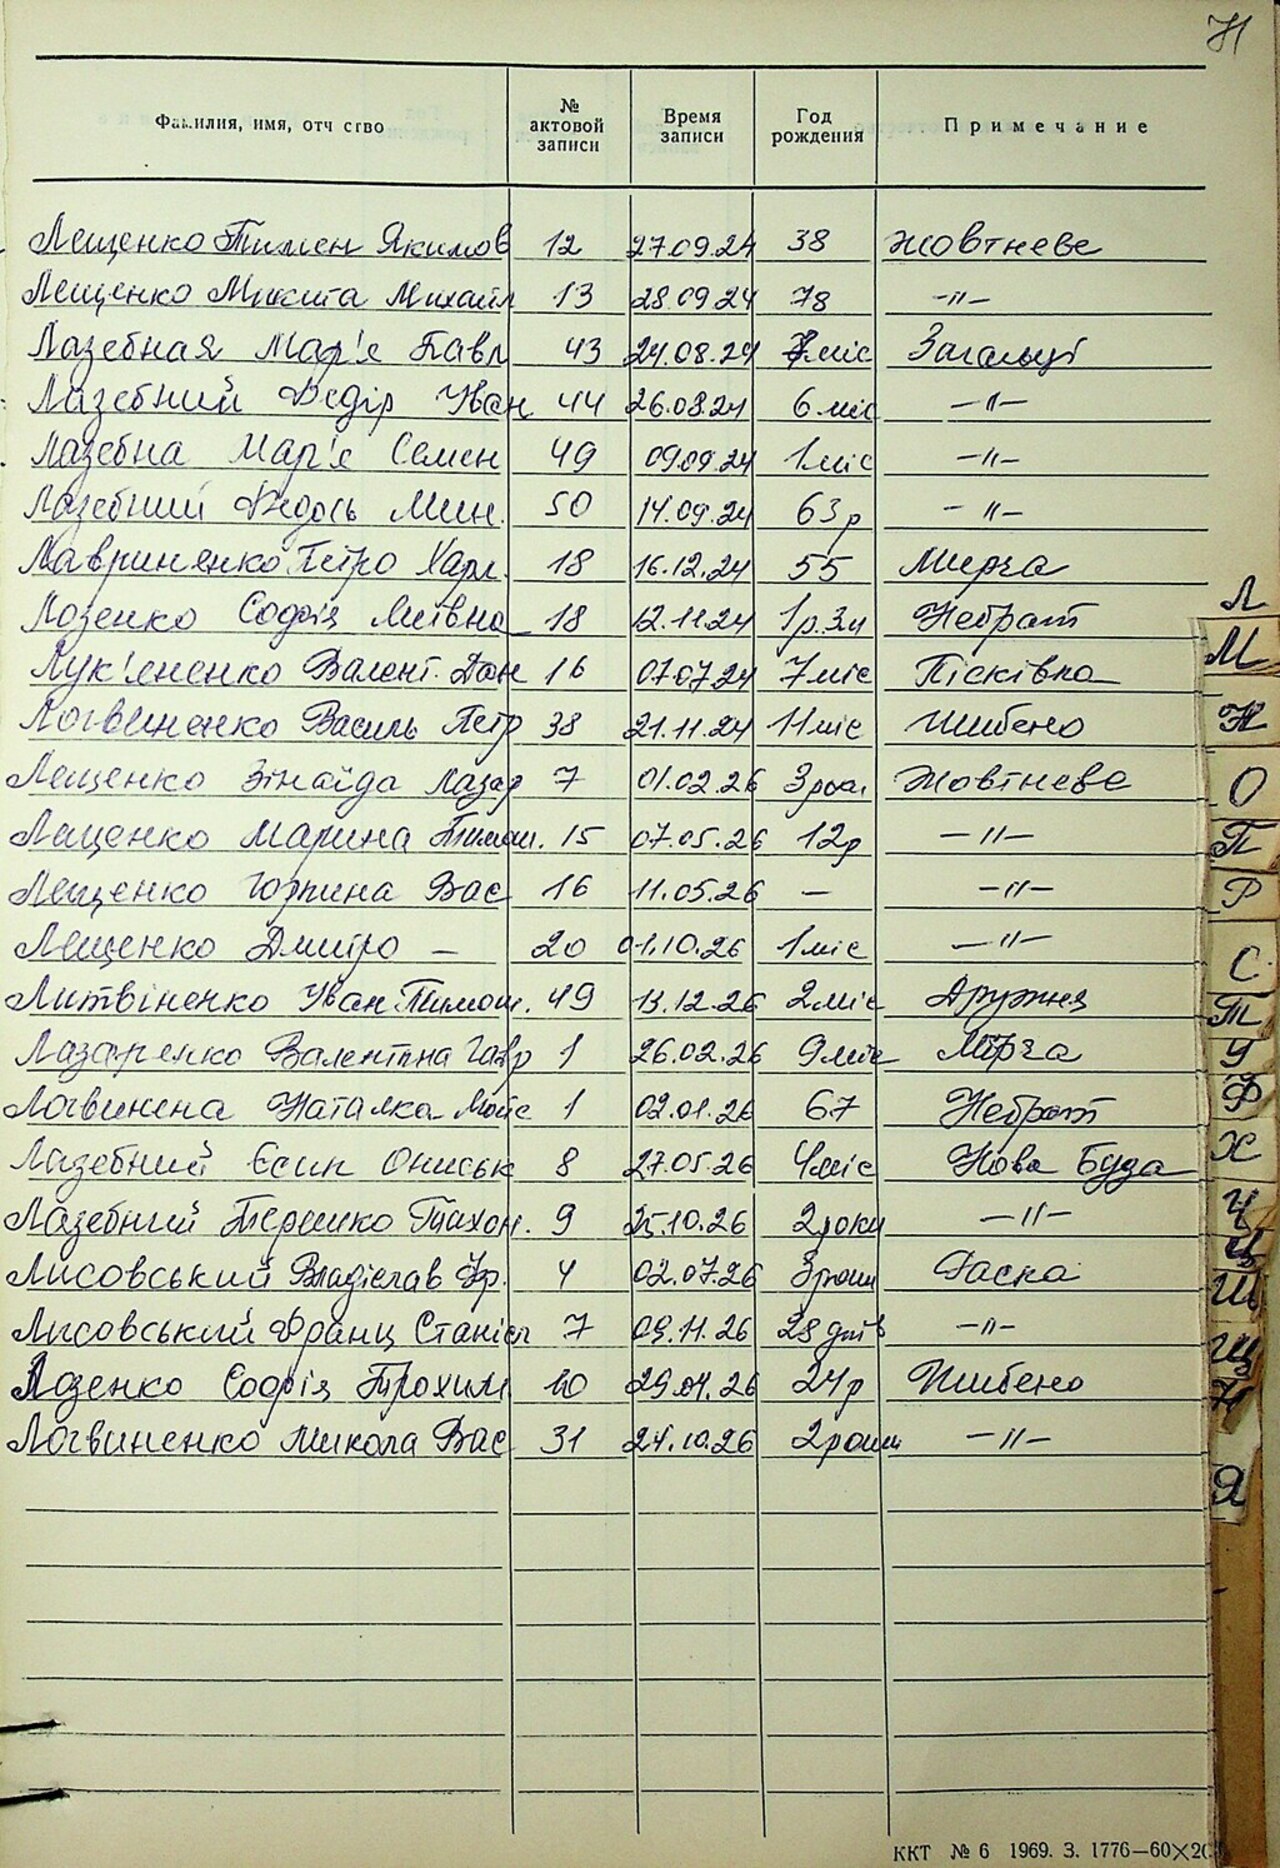 71
Фамилия, имя, отчество № актовой записи Время записи Год рождения Примечание
Лещенко Тимен Якимов 12 27.09.24 38 Жовтневе
Лещенко Микита Михайл 13 28.09.24 78 -"-
Лазебная Мар'я Павл 43 24.08.24 7 міс Загальці
Лазебний Федір Уван 44 26.08.24 6 міс -"-
Лазебна Мар'я Семен 49 09.09.24 1 міс -"-
Лазебний Федось Мин. 50 14.09.24 63 р -"-
Лавриненко Петро Харл. 18 16.12.24 55 Мирча
Лозенко Софія Митвна 18 12.11.24 1 р. 3 м Небрат
Лук'яненко Валент. Дан 16 07.07.24 7 міс Пісківка
Логвиненко Василь Петр 38 21.11.24 11 міс Шибено
Лещенко Зінаїда Лазар 7 01.02.26 3 роки Жовтневе
Лещенко Марина Тимош. 15 07.05.26 12 р -"-
Лещенко Юрпина Вас 16 11.05.26 - -"-
Лещенко Дмитро - 20 01.10.26 1 міс -"-
Литвіненко Уван Тимош. 49 13.12.26 2 міс Дружня
Лазаренко Валентина Гавр 1 26.02.26 9 міс Мірча
Логвинена Наталка Мойс 1 02.01.26 67 Небрат
Лазебний Єсип Ониськ 8 27.05.26 4 міс Нова Буда
Лазебний Терешко Тихон. 9 25.10.26 2 роки -"-
Лисовський Владіслав Фр. 4 02.07.26 3 роки Раска
Лисовський Франц Станісл 7 09.11.26 28 днів -"-
Лозенко Софія Трохим 10 29.04.26 24 р Шибено
Логвиненко Микола Вас 31 24.10.26 2 роки -"-
Л
М
Н
О
П
Р
С
Т
У
Ф
Х
Ч
Ц
Ш
Щ
Я
ККТ № 6 1969. З. 1776—60×20